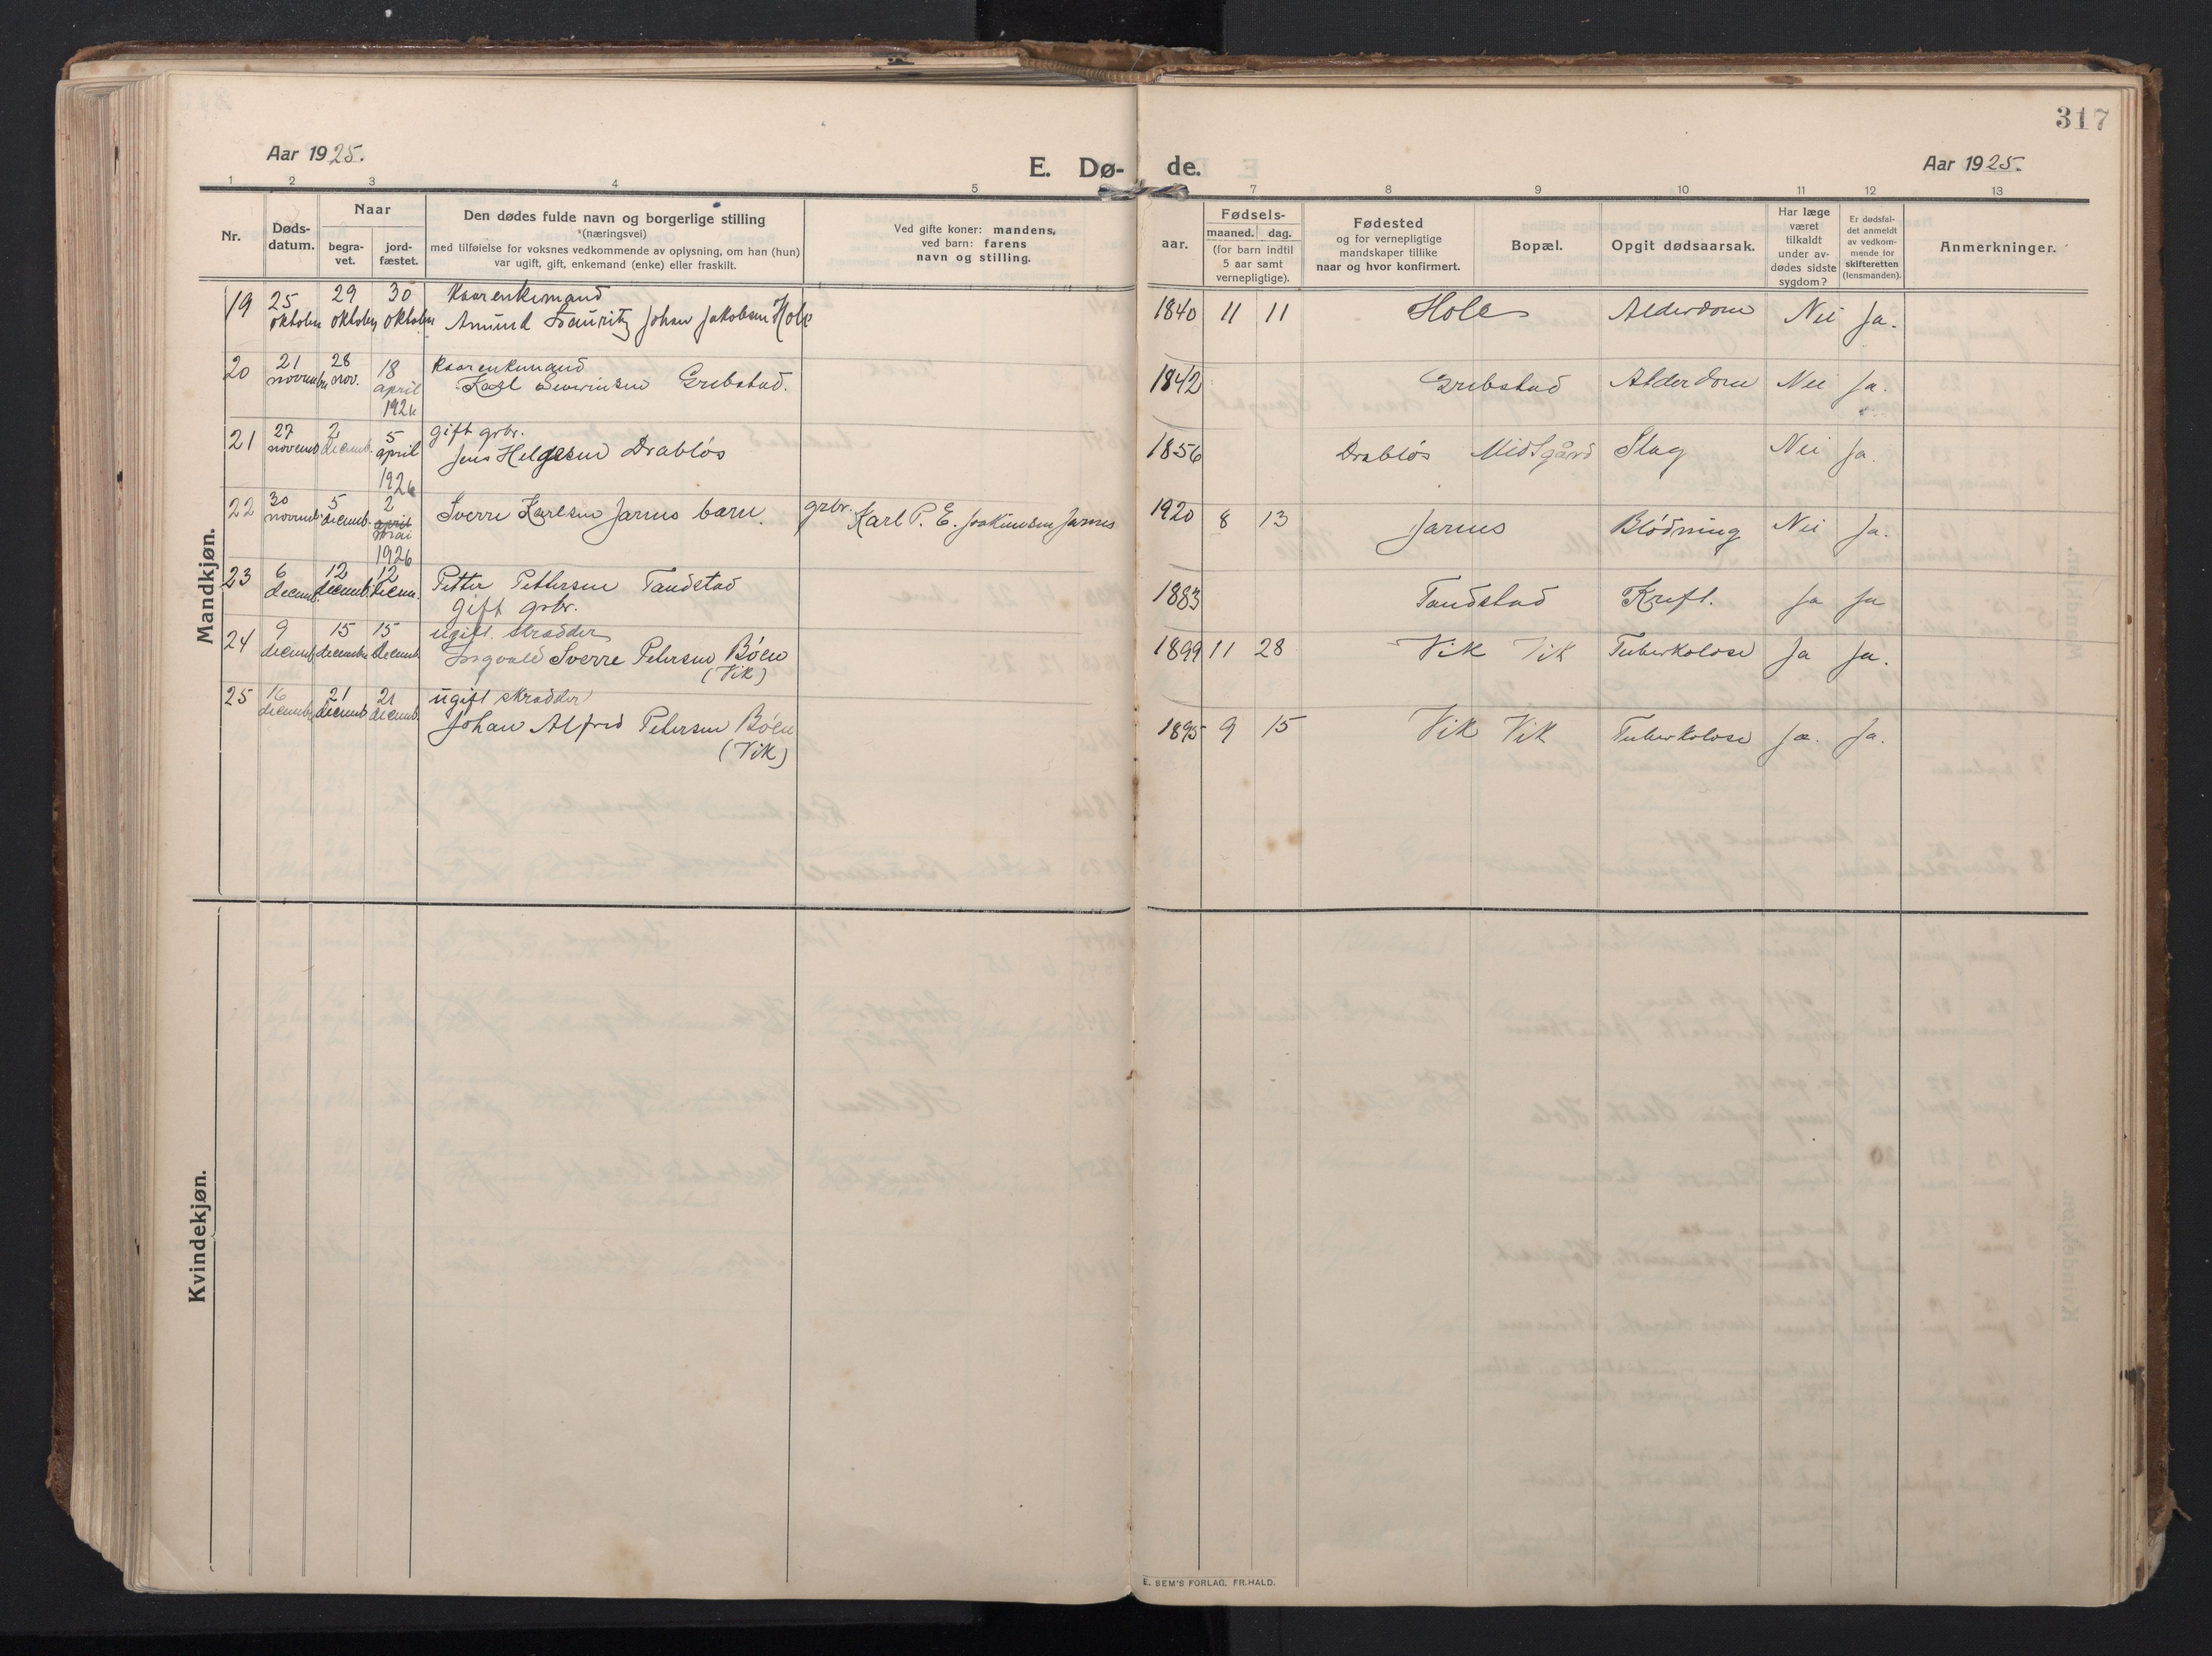 317
Aar 1925.
E. Dø- de.
Aar 1925.
1 2 3 4 5 7 8 9 10 11 12 13
Nr.
Døds-
datum.
Naar
begra-
vet.
jord-
fæstet.
Den dødes fulde navn og borgerlige stilling
(næringsvei)
med tilføielse for voksnes vedkommende av oplysning, om han (hun)
var ugift, gift, enkemand (enke) eller fraskilt.
Ved gifte koner: mandens,
ved barn: farens
navn og stilling.
aar.
Fødsels-
maaned. dag.
(for barn indtil
5 aar samt
vernepligtige).
Fødested
og for vernepligtige
mandskaper tillike
naar og hvor konfirmert.
Bopæl.
Opgit dødsaarsak.
Har læge
været
tilkaldt
under av-
dødes sidste
sygdom?
Er dødsfal-
det anmeldt
av vedkom-
mende for
skifteretten
(lensmanden).
Anmerkninger.
Mandkjøn.
19 25 29 30 Kaarenkemand
oktober oktober oktober Amund Lauritz Johan Jakobsen Hole 1840 11 11 Hole Alderdom Nei Ja.
20 21 28 18 Kaarenkemand
novemb. nov. april Karl Severinsen Grebstad. 1842 Grebstad Alderdom Nei Ja.
1926
21 27 2 5 gift grbr.
novemb. decemb. april Jens Helgesen Drabløs 1856 Drabløs Midtgård Slag Nei Ja.
1926
22 30 5 2 Sverre Karlsen Jarnes barn. grbr. Karl P. E. Joakimsen Jarnes 1920 8 13 Jarnes Blødning Nei Ja.
novemb. decemb. april
mai
1926
23 6 12 12 Petter Pettersen Tandstad 1883 Tandstad Kreft. Ja Ja
decemb. decemb. decem. gift grbr.
24 9 15 15 ugift. skrædder
decemb. decembr. decemb. Ingvald Sverre Petersen Bøen 1899 11 28 Vik Vik Tuberkolose Ja Ja.
(Vik)
25 16 21 21 ugift skrædder
decembr. decemb. decemb. Johan Alfred Petersen Bøen 1895 9 15 Vik Vik Tuberkolose Ja. Ja.
(Vik)
Kvindekjøn.
E. SEM'S FORLAG, FR.HALD.